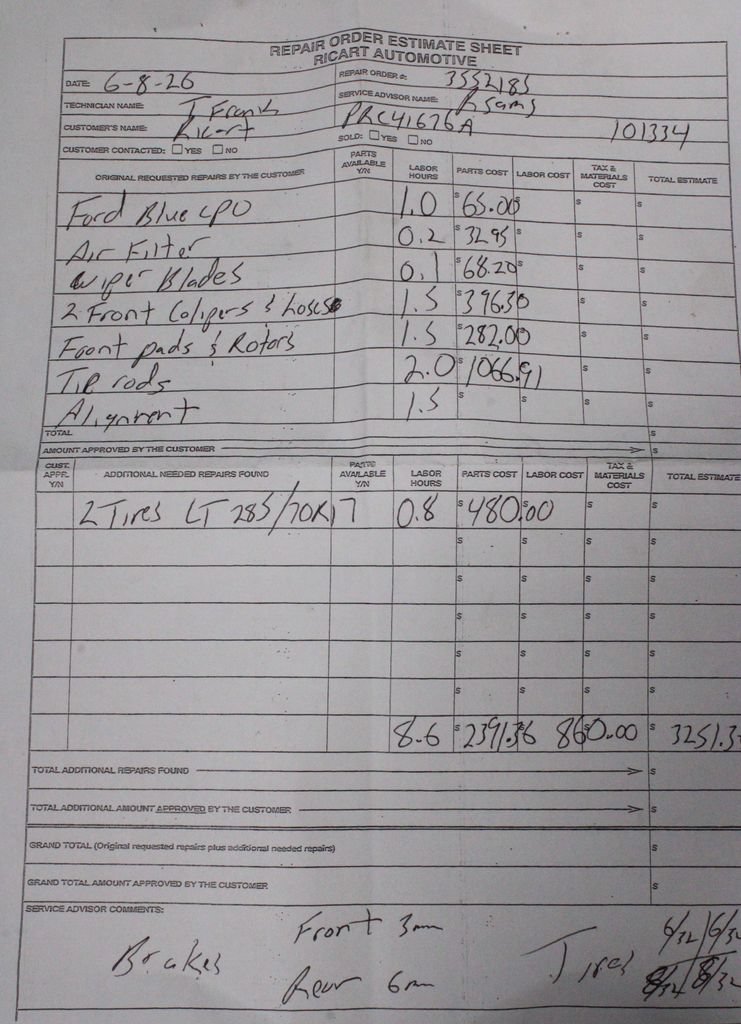 REPAIR ORDER ESTIMATE SHEET
RICART AUTOMOTIVE
DATE: 6-8-26 REPAIR ORDER #: 3552185
TECHNICIAN NAME: T Frank SERVICE ADVISOR NAME: RSams
CUSTOMER'S NAME: Ricart PRC41676A 101334
CUSTOMER CONTACTED: YES NO SOLD: YES NO
ORIGINAL REQUESTED REPAIRS BY THE CUSTOMER PARTS AVAILABLE Y/N LABOR HOURS PARTS COST LABOR COST TAX & MATERIALS COST TOTAL ESTIMATE
Ford Blue CPO 1.0 $ 65.00 $ $ $
Air Filter 0.2 $ 32.95 $ $ $
Wiper Blades 0.1 $ 68.20 $ $ $
2 Front Calipers & hoses 1.5 $ 396.30 $ $ $
Front pads & Rotors 1.5 $ 282.00 $ $ $
Tie rods 2.0 $ 1066.91 $ $ $
Alignment 1.5 $ $ $ $
TOTAL $
AMOUNT APPROVED BY THE CUSTOMER $
CUST. APPR. Y/N ADDITIONAL NEEDED REPAIRS FOUND PARTS AVAILABLE Y/N LABOR HOURS PARTS COST LABOR COST TAX & MATERIALS COST TOTAL ESTIMATE
2 Tires LT 285/70R17 0.8 $ 480.00 $ $ $
$ $ $ $
$ $ $ $
$ $ $ $
$ $ $ $
$ $ $ $
8.6 $ 2391.36 $ 860.00 $ $ 3251.3
TOTAL ADDITIONAL REPAIRS FOUND $
TOTAL ADDITIONAL AMOUNT APPROVED BY THE CUSTOMER $
GRAND TOTAL (Original requested repairs plus additional needed repairs) $
GRAND TOTAL AMOUNT APPROVED BY THE CUSTOMER $
SERVICE ADVISOR COMMENTS:
Brakes Front 3mm Tires 6/32 6/32
Rear 6mm 8/32 8/32